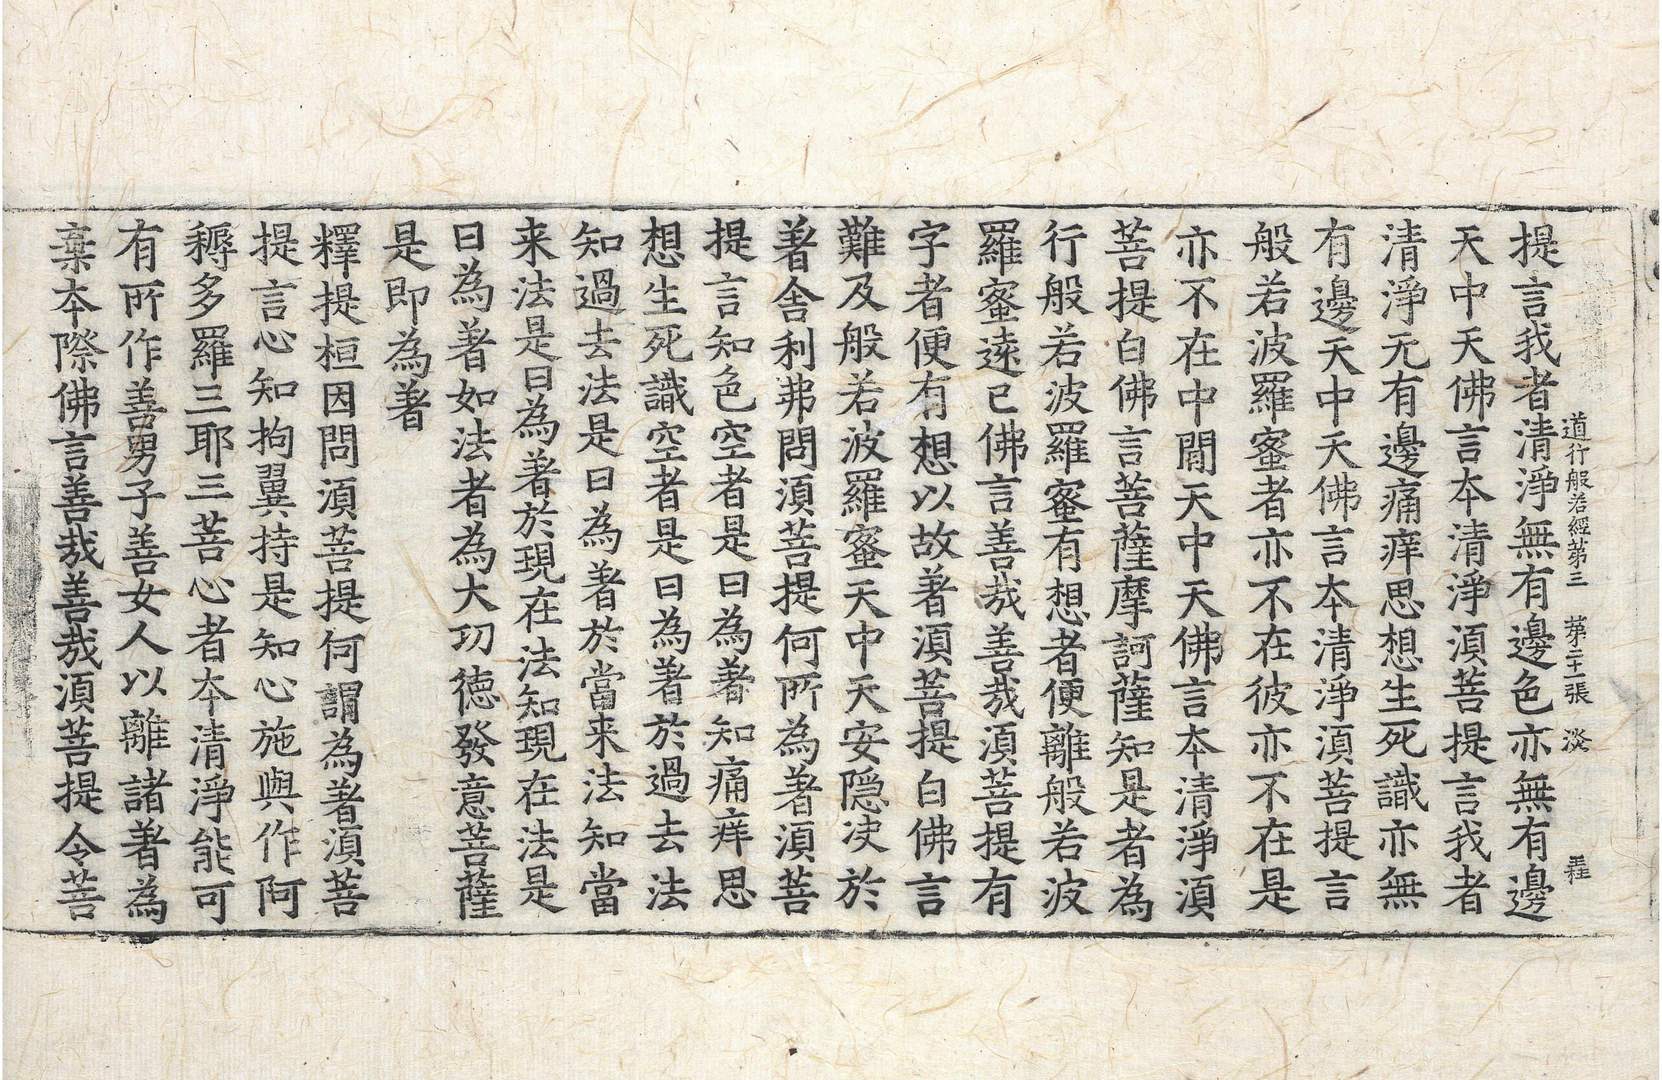 道行般若經第三　第二十一張　淡
提言我者清淨無有邊色亦無有邊
天中天佛言本清淨湏菩提言我者
清淨无有邊痛痒思想生死識亦無
有邊天中天佛言本清淨湏菩提言
般若波羅蜜者亦不在彼亦不在是
亦不在中閒天中天佛言本清淨湏
菩提白佛言菩薩摩訶薩知是者為
行般若波羅蜜有想者便離般若波
羅蜜遠已佛言善哉善哉湏菩提有
字者便有想以故著湏菩提白佛言
難及般若波羅蜜天中天安隠决於
著舍利弗問湏菩提何所為著湏菩
提言知色空者是曰為著知痛痒思
想生死識空者是曰為著於過去法
知過去法是曰為著於當来法知當
来法是曰為著於現在法知現在法是
曰為著如法者為大功徳發意菩薩
是即為著
釋提桓因問湏菩提何謂為著湏菩
提言心知拘翼持是知心施與作阿
耨多羅三耶三菩心者本清淨能可
有所作善男子善女人以離諸著為
棄本際佛言善哉善哉湏菩提令菩